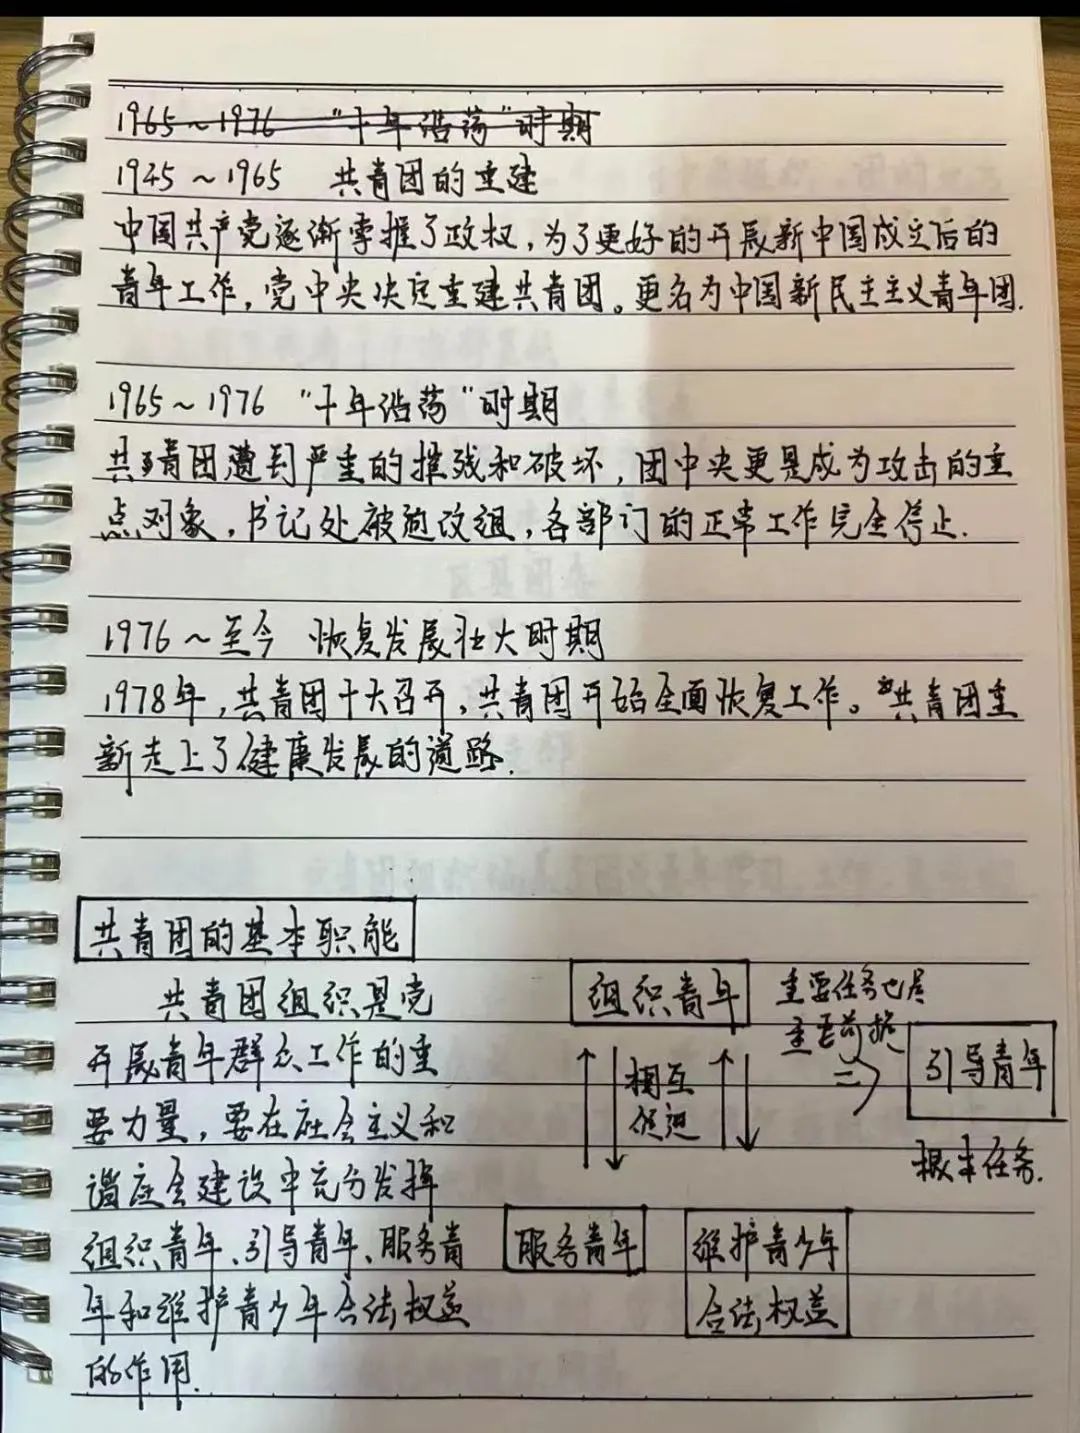 1965~1976 "十年浩荡"时期
1945~1965 共青团的重建
中国共产党逐渐掌握了政权,为了更好的开展新中国成立后的
青年工作,党中央决定重建共青团。更名为中国新民主主义青年团.
1965~1976 "十年浩荡"时期
共青团遭到严重的摧残和破坏,团中央更是成为攻击的重
点对象,书记处被迫改组,各部门的正常工作完全停止.
1976~至今 恢复发展壮大时期
1978年,共青团十大召开,共青团开始全面恢复工作。共青团重
新走上了健康发展的道路.
共青团的基本职能
共青团组织是党
开展青年群众工作的重
要力量,要在社会主义和
谐社会建设中充分发挥
组织青年、引导青年、服务青
年和维护青少年合法权益
的作用.
组织青年
重要任务也是
主要前提
引导青年
相互
促进
根本任务.
服务青年
维护青少年
合法权益